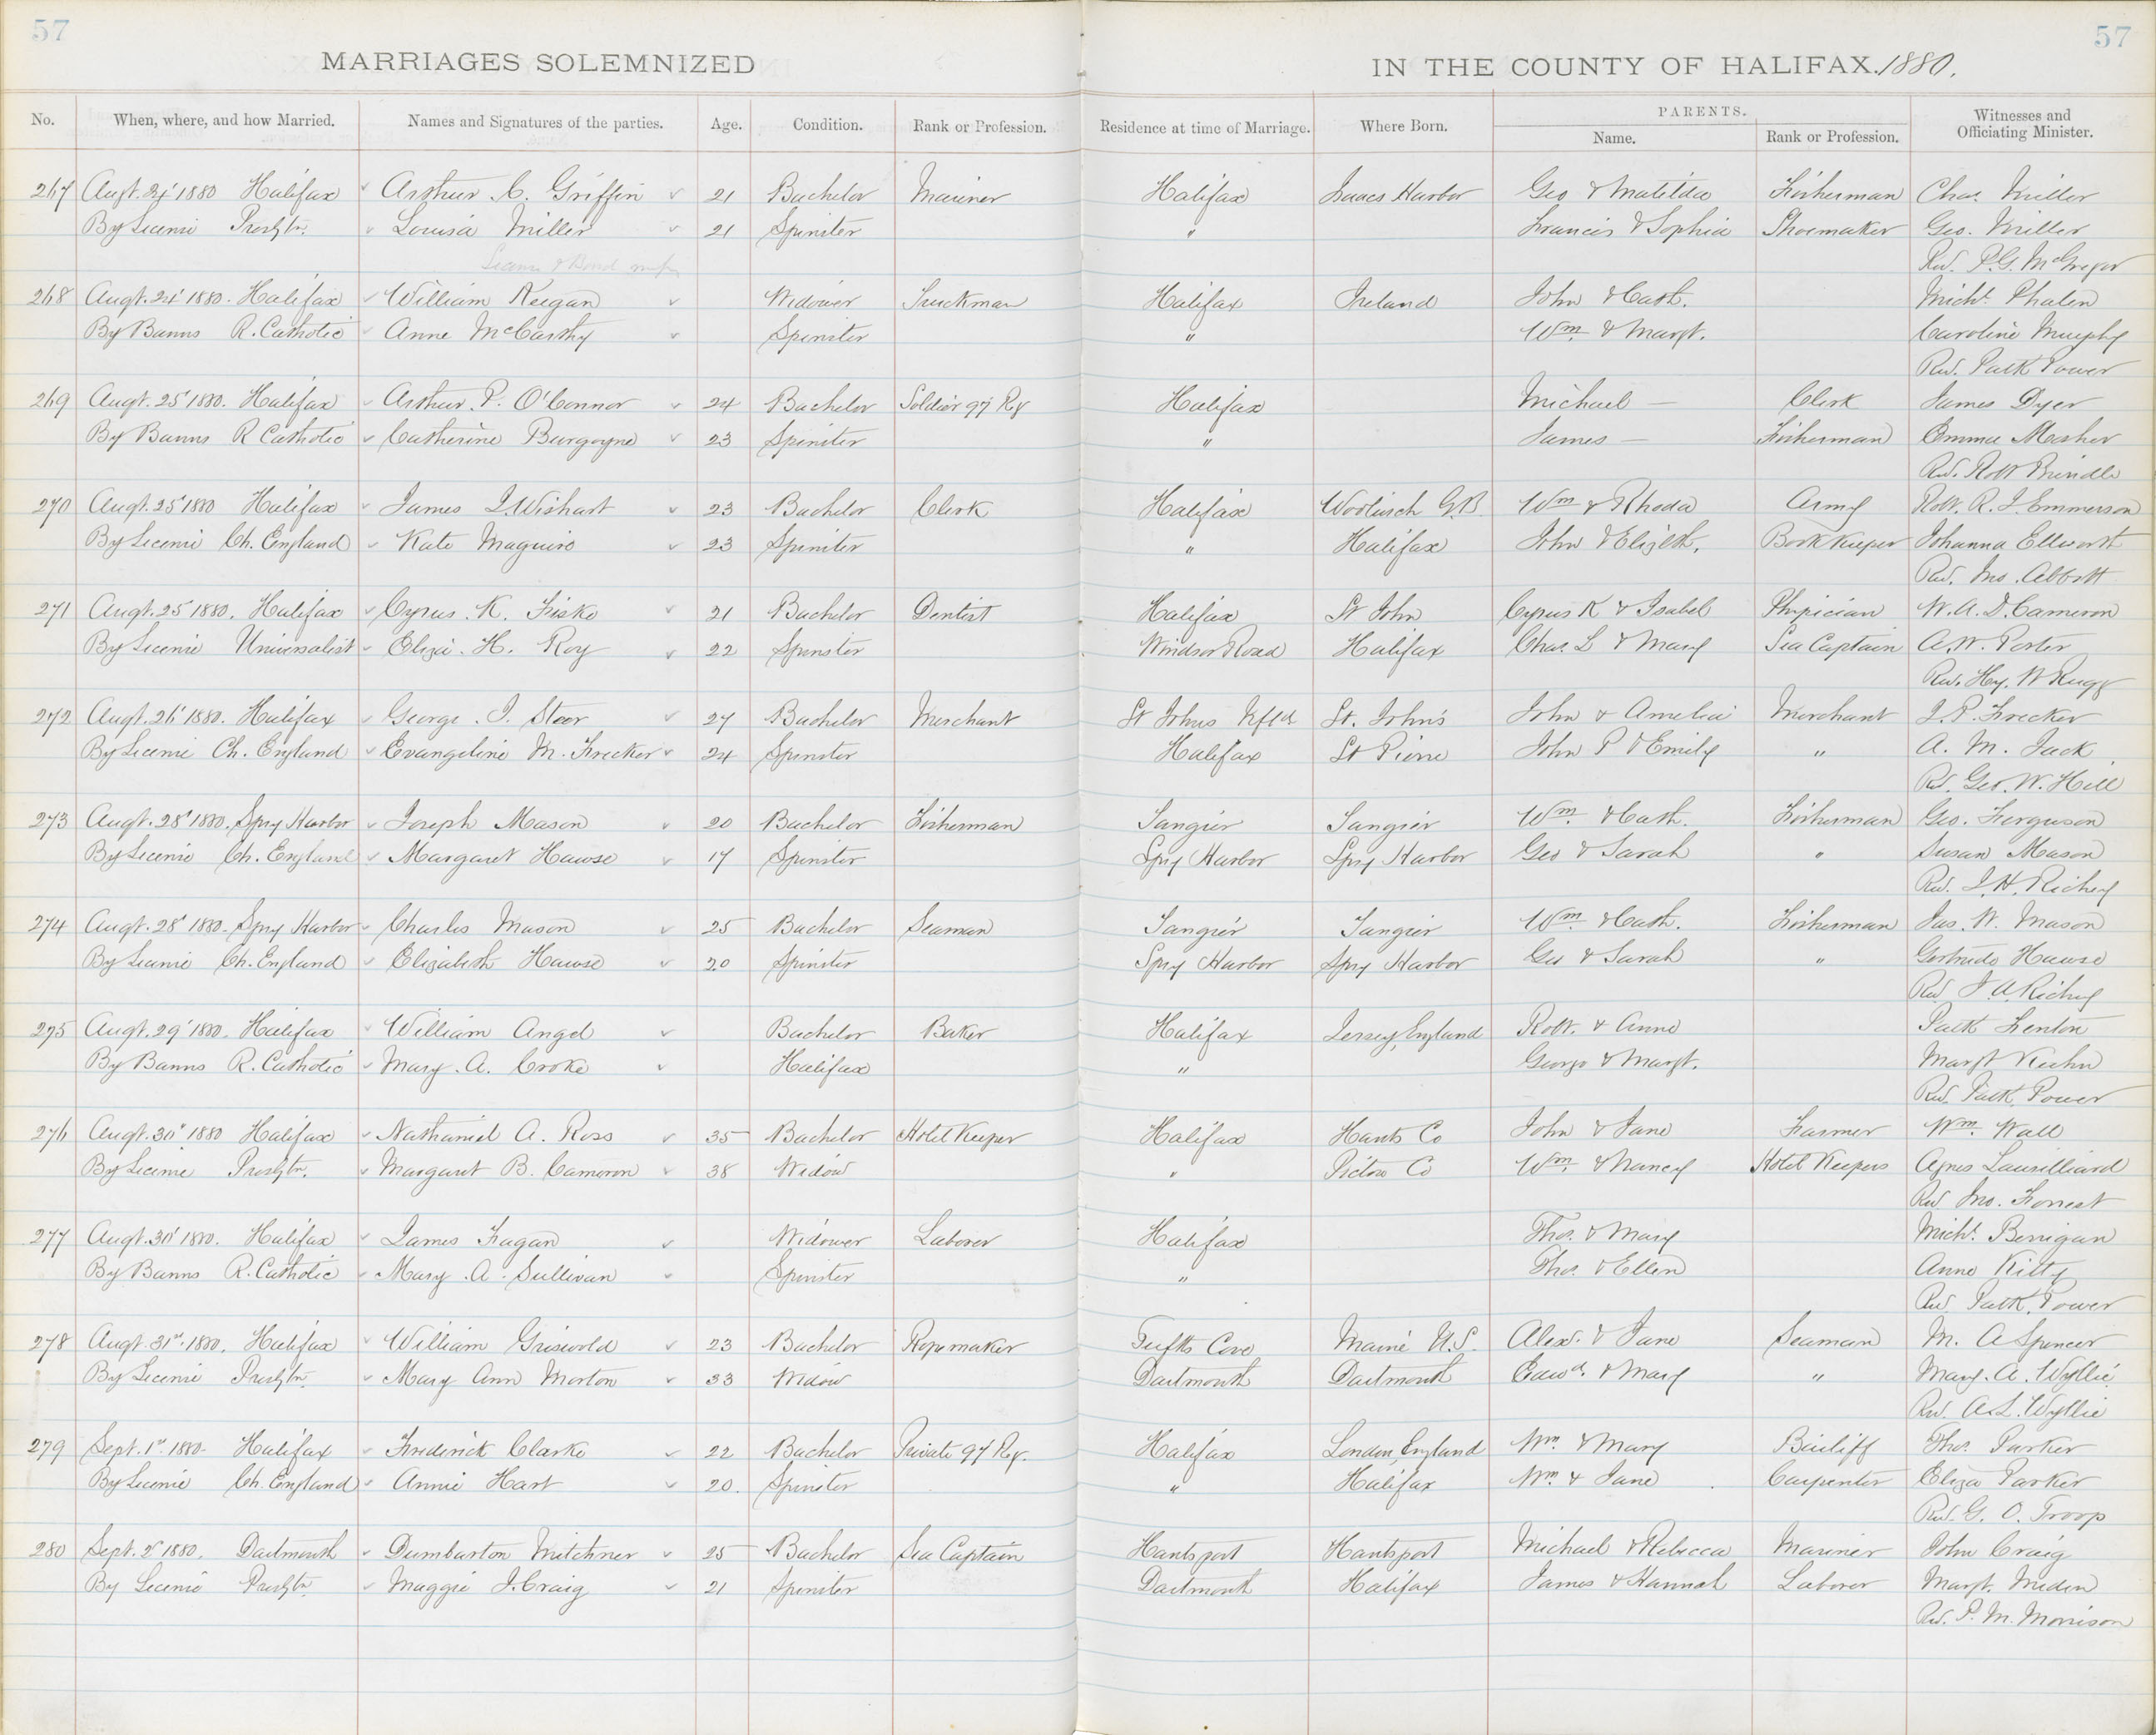 57
57
MARRIAGES SOLEMNIZED IN THE COUNTY OF HALIFAX. 1880.
No. When, where, and how Married. Names and Signatures of the parties. Age. Condition. Rank or Profession. Residence at time of Marriage. Where Born. PARENTS. Witnesses and
Name. Rank or Profession. Officiating Minister.
267 Augt. 24' 1880 Halifax Arthur C. Griffin 21 Bachelor Mariner Halifax Isaacs Harbor Geo & Matilda Fisherman Chas. Miller
By License Presbtn. Louisa Miller 21 Spinster " Francis & Sophia Shoemaker Geo. Miller
License & Bond
Rev. P.G. McGregor
268 Augt. 24' 1880. Halifax William Keegan Widower Truckman Halifax Ireland John & Cath. Michl. Phalen
By Banns R. Catholic Anne McCarthy Spinster " Wm. & Margt. Caroline Murphy
Rev. Patk Power
269 Augt. 25' 1880. Halifax Arthur. P. O'Connor 24 Bachelor Soldier 97 Rg Halifax Michael — Clerk James Dyer
By Banns R Catholic Catherine Burgoyne 23 Spinster " James — Fisherman Emma Mosher
Rev. Robt Brindle
270 Augt. 25' 1880 Halifax James I. Wishart 23 Bachelor Clerk Halifax Woolwich G.B. Wm & Rhoda Army Robt. R. J. Emmerson
By License Ch. England Kate Maguire 23 Spinster " Halifax John & Elizbth. Book Keeper Johanna Ellworth
Rev. Jno. Abbott
271 Augt. 25' 1880. Halifax Cyrus. K. Fiske 21 Bachelor Dentist Halifax St John Cyrus K & Isabel Physician W. A. D. Cameron
By License Universalist Eliza. H. Roy 22 Spinster Windsor Road Halifax Chas. L & Mary Sea Captain A. W. Porter
Rev. Hy. W Rugg
272 Augt. 26' 1880. Halifax George. I. Steer 27 Bachelor Merchant St Johns Nfld St. John's John & Amelia Merchant J. P. Frecker
By License Ch. England Evangeline M. Frecker 24 Spinster Halifax St Pierre John P & Emily " A. M. Jack
Rev. Geo. W. Hill
273 Augt. 28' 1880. Spry Harbor Joseph Mason 20 Bachelor Fisherman Tangier Tangier Wm. & Cath. Fisherman Geo. Ferguson
By License Ch. England Margaret Hawse 17 Spinster Spry Harbor Spry Harbor Geo & Sarah " Susan Mason
Rev. J. H. Richey
274 Augt. 28' 1880. Spry Harbor Charles Mason 25 Bachelor Seaman Tangier Tangier Wm. & Cath. Fisherman Jas. W. Mason
By License Ch. England Elizabeth Hawse 20 Spinster Spry Harbor Spry Harbor Geo & Sarah " Gertrude Hawse
Rev J. A. Richey
275 Augt. 29' 1880. Halifax William Angel Bachelor Baker Halifax Jersey, England Robt. & Anne Patk Fenton
By Banns R. Catholic Mary. A. Croke Halifax " George & Margt. Margt
Rev. Patk. Power
276 Augt. 30" 1880 Halifax Nathaniel A. Ross 35 Bachelor Hotel Keeper Halifax Hants Co John & Jane Farmer Wm. Wall
By License Presbtn. Margaret B. Cameron 38 Widow " Pictou Co Wm. & Nancy Hotel Keepers Agnes Laurilliard
Rev Jno. Forrest
277 Augt. 30' 1880. Halifax James Fagan Widower Laborer Halifax Thos. & Mary Michl. Berrigan
By Banns R. Catholic Mary. A. Sullivan Spinster " Thos. & Ellen Anne Kitty
Rev. Patk. Power
278 Augt. 31st 1880. Halifax William Griswold 23 Bachelor Ropemaker Tufts Cove Maine U.S. Alex. & Jane Seaman M. A Spencer
By License Presbtn. Mary Ann Morton 33 Widow Dartmouth Dartmouth Edwd. & Mary " Mary. A. Wyllie
Rev. A. L. Wyllie
279 Sept. 1st 1880- Halifax Frederick Clarke 22 Bachelor Private 97 Rg. Halifax London, England Wm. & Mary Bailiff Thos. Parker
By License Ch. England Annie Hart 20. Spinster " Halifax Wm. & Jane Carpenter Eliza Parker
Rev. G. O. Troop
280 Sept. 2' 1880. Dartmouth Dumbarton Mitchner 25 Bachelor Sea Captain Hantsport Hantsport Michael & Rebecca Mariner John Craig
By License Presbtn. Maggie J. Craig 21 Spinster Dartmouth Halifax James & Hannah Laborer Margt.
Rev. P. M. Morrison